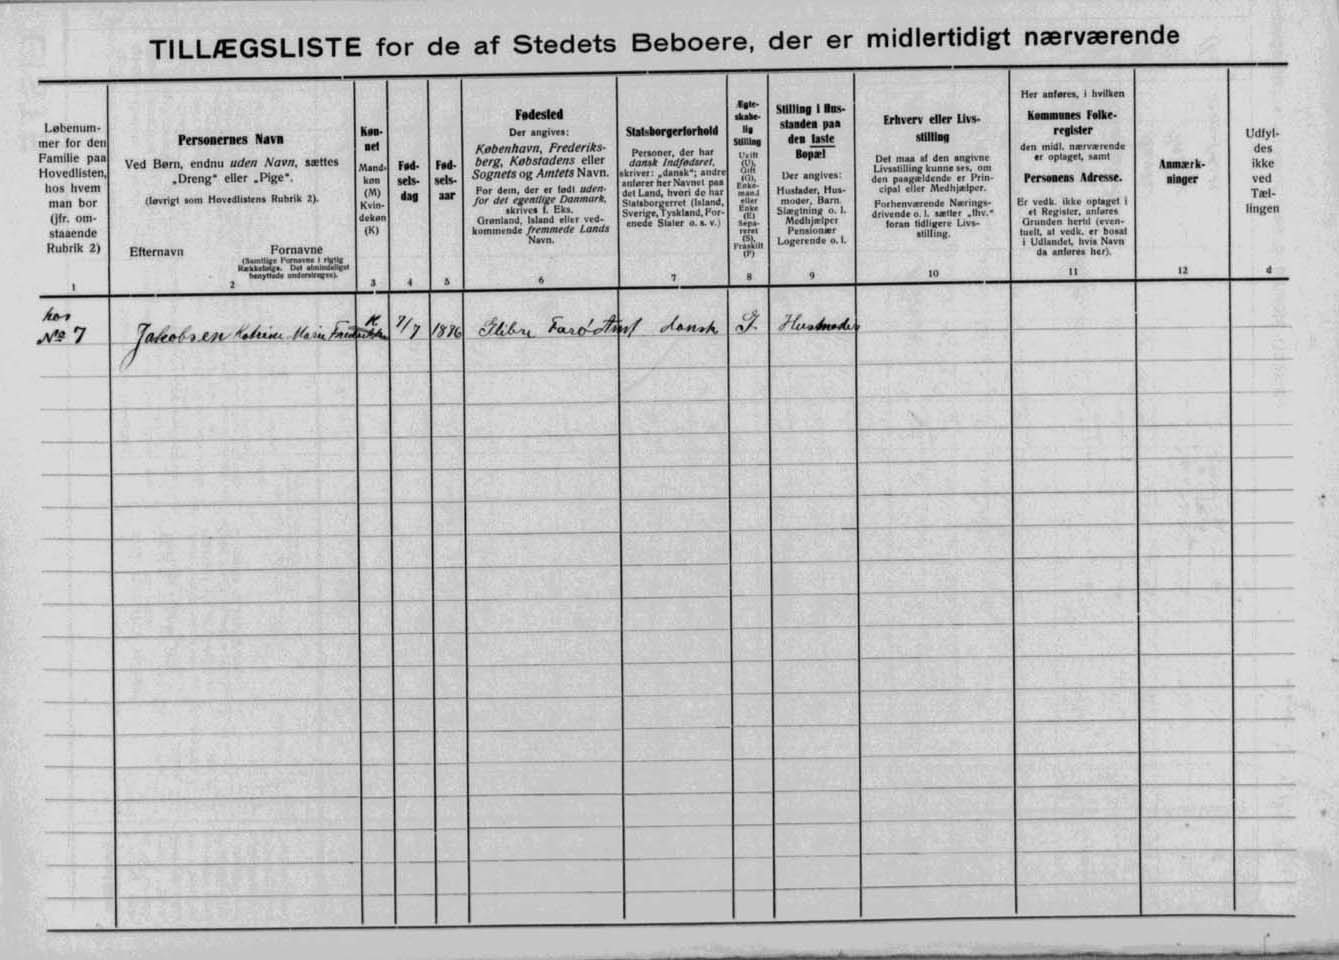 TILLÆGSLISTE for de af Stedets Beboere, der er midlertidigt nærværende
Løbenum-
mer for den
Familie paa
Hovedlisten,
hos hvem
man bor
(jfr. om-
staaende
Rubrik 2)
1
Personernes Navn
Ved Børn, endnu uden Navn, sættes
„Dreng“ eller „Pige“.
(Iøvrigt som Hovedlistens Rubrik 2).
Efternavn
Fornavne
(Samtlige Fornavne i rigtig
Rækkefølge. Det almindeligst
benyttede understreges).
2
Køn-
net
Mand-
køn
(M)
Kvin-
dekøn
(K)
3
Fød-
sels-
dag
4
Fød-
sels-
aar
5
Fødested
Der angives:
København, Frederiks-
berg, Købstadens eller
Sognets og Amtets Navn.
For dem, der er født uden-
for det egentlige Danmark,
skrives f. Eks.
Grønland, Island eller ved-
kommende fremmede Lands
Navn.
6
Statsborgerforhold
Personer, der har
dansk Indfødsret,
skriver: „dansk“; andre
anfører her Navnet paa
det Land, hvori de har
Statsborgerret (Island,
Sverige, Tyskland, For-
enede Stater o. s. v.)
7
Ægte-
skabe-
lig
Stilling
Ugift
(U),
Gift
(G),
Enke-
mand
eller
Enke
(E)
Sepa-
reret
(S),
Fraskilt
(F)
8
Stilling i Hus-
standen paa
den faste
Bopæl
Der angives:
Husfader, Hus-
moder, Barn,
Slægtning o. l.
Medhjælper
Pensionær
Logerende o. l.
9
Erhverv eller Livs-
stilling
Det maa af den angivne
Livsstilling kunne ses, om
den paagældende er Prin-
cipal eller Medhjælper.
Forhenværende Nærings-
drivende o. l. sætter „fhv.“
foran tidligere Livs-
stilling.
10
Her anføres, i hvilken
Kommunes Folke-
register
den midl. nærværende
er optaget, samt
Personens Adresse.
Er vedk. ikke optaget i
et Register, anføres
Grunden hertil (even-
tuelt, at vedk. er bosat
i Udlandet, hvis Navn
da anføres her).
11
Anmærk-
ninger
12
Udfyl-
des
ikke
ved
Tæl-
lingen
d
hos
No 7 Jakobsen Katrine Marie Fredrikke K 7/7 1896 Glibre Færø Amt dansk G. Husmoder